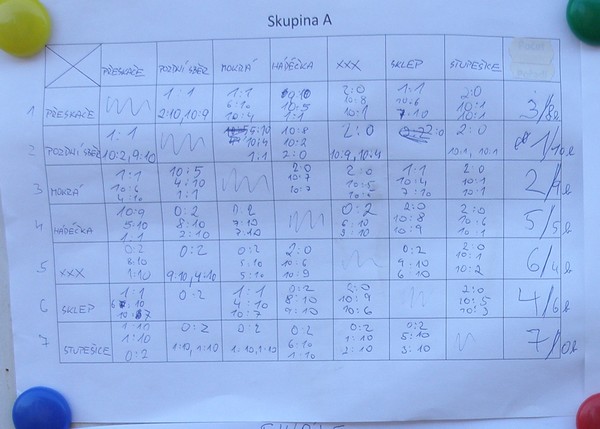 Skupina A
PŘESKAČE POZDNÍ SBĚR MOKZÁ HÁDĚČKA XXX SKLEP STUPEŠICE
1 PŘESKAČE 1:1 2:10, 10:9 1:1 10:4 10:5 1:1 2:0 10:8 10:1 1:1 2:0 10:1 10:1 3/8b
2 POZDNÍ SBĚR 1:1 10:2, 9:10 10:4 1:1 10:8 10:2 2:0 2:0 10:9, 10:4 2:0 2:0 10:1, 10:1 1/10b
3 MOKZÁ 1:1 10:6 4:10 10:5 4:10 1:1 2:0 10:7 10:7 2:0 10:5 1:1 10:4 7:10 2:0 10:1 10:1 2/9b
4 HÁDĚČKA 10:9 5:10 1:1 0:2 8:10 2:10 0:2 7:10 7:10 0:2 6:10 2:0 10:8 10:9 2:0 10:6 5/5b
5 XXX 0:2 8:10 1:10 0:2 9:10, 4:10 0:2 5:10 5:10 2:0 10:6 10:9 0:2 9:10 6:10 2:0 10:1 10:2 6/4b
6 SKLEP 1:1 10:7 0:2 1:1 4:10 10:7 0:2 8:10 9:10 2:0 10:9 10:6 2:0 10:5 10:3 4/6b
7 STUPEŠICE 1:10 1:10 0:2 0:2 1:10, 1:10 0:2 1:10, 1:10 0:2 6:10 1:10 0:2 1:10 2:10 0:2 5:10 3:10 7/0b